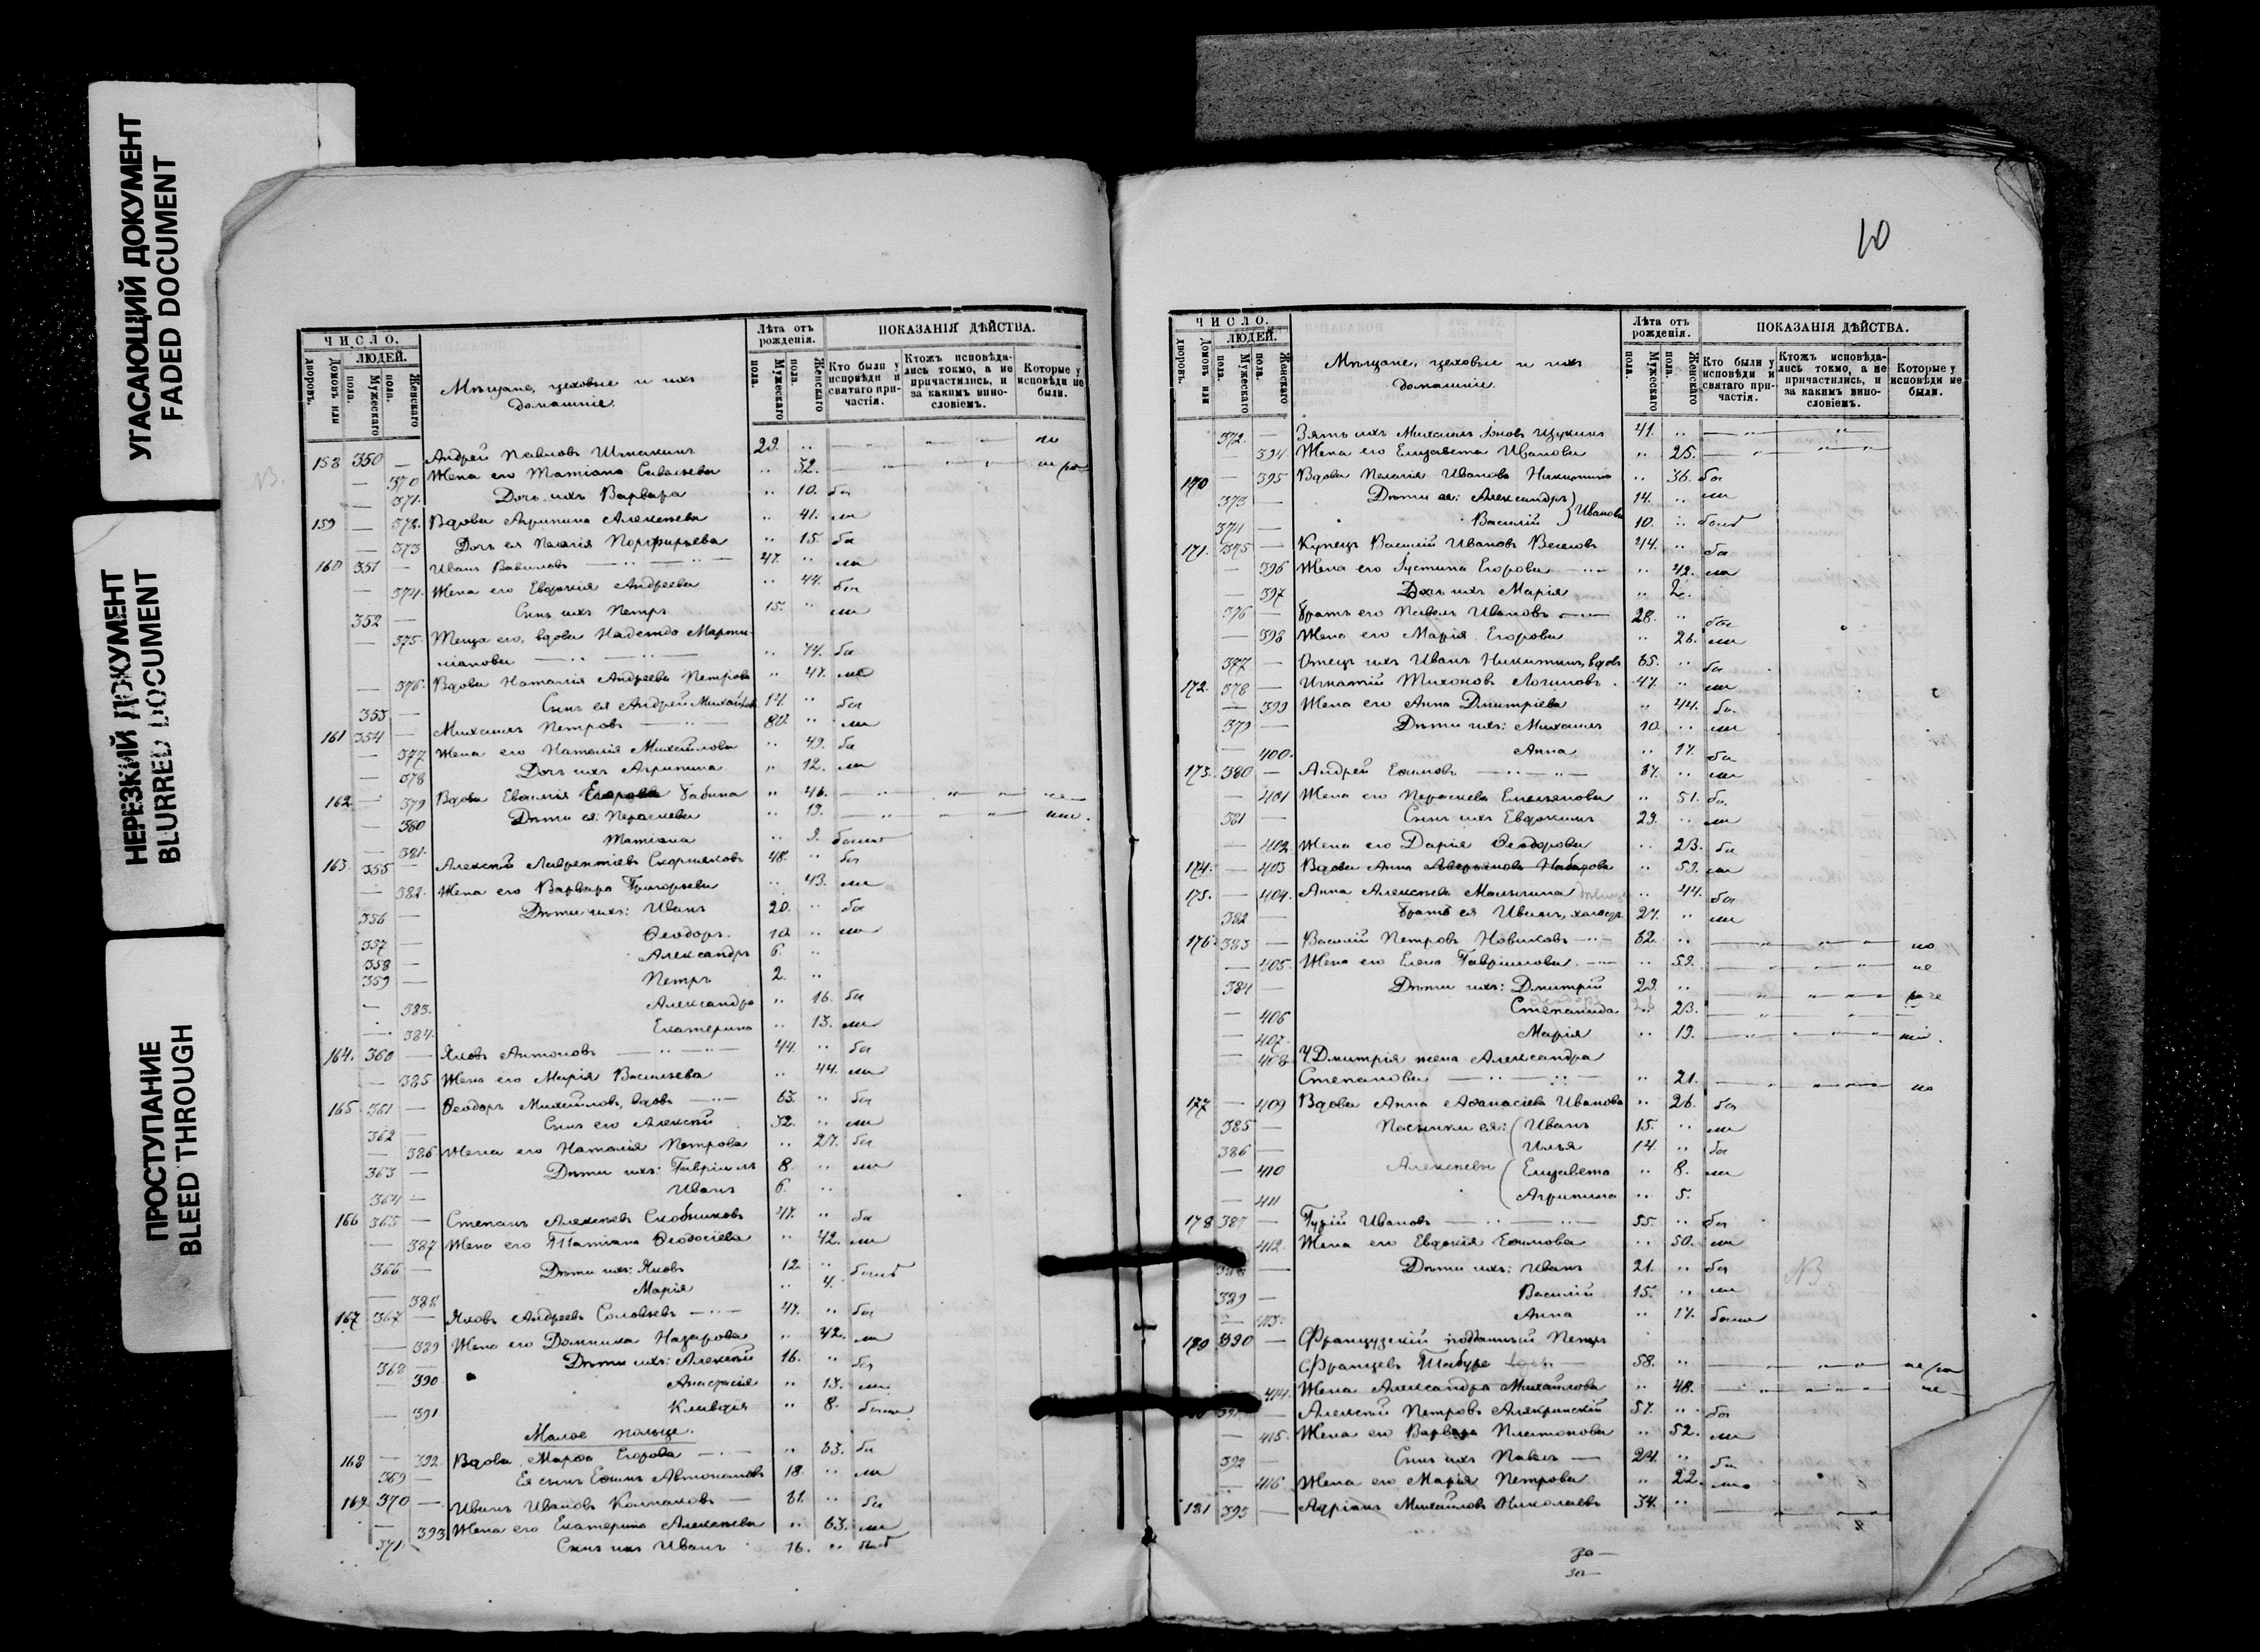 УГАСАЮЩИЙ ДОКУМЕНТ
FADED DOCUMENT
НЕРЕЗКИЙ ДОКУМЕНТ
BLURRED DOCUMENT
ПРОСТУПАНИЕ
BLEED THROUGH
ЧИСЛО.
ЛЮДЕЙ.
Домовъ или дворовъ.
Мужескаго пола.
Женскаго пола.
Мѣщане, цеховые и ихъ
домашніе.
Лѣта отъ рожденія.
Мужескаго пола.
Женскаго пола.
ПОКАЗАНІЯ ДѢЙСТВА.
Кто были у исповѣди и святаго причастія.
Ктожъ исповѣдались токмо, а не причастились, и за какимъ винословіемъ.
Которые у исповѣди не были.
158 350 — Андрей Павловъ 29. ..
— 370 Жена его Татіана Савельева .. 32.
371. Дочь ихъ Варвара .. 10. бы
159 — 372. Вдова Агрипина Алексѣева .. 41. ли
— 373 Дочь ея Пелагія Порфирьева .. 15. бы
160 351 — Иванъ Вавиловъ 47. .. ли
— 374. Жена его Евдокія Андреева .. 44. бы
352 — Сынъ ихъ Петръ 15. .. ли
— 375. Теща его, вдова Надежда Марти-
ніанова .. 74. бы
— 376. Вдова Наталія Андреева Петрова .. 47. ли
353 — Сынъ ея Андрей Михайловъ 14. .. бы
161 354 — Михаилъ Петровъ 80. .. ли
— 377 Жена его Наталія Михайлова .. 49. бы
— 378 Дочь ихъ Агрипина .. 12. ли
162. — 379 Вдова Евѳимія Егорова Бабина .. 46.
— 380 Дѣти ея: Параскева .. 19.
— 381. Татіана .. 9. были
163. 355 — Алексѣй Лаврентіевъ Скорняковъ 48. .. бы
— 382. Жена его Варвара Григорьева .. 43. ли
356 — Дѣти ихъ: Иванъ 20. .. бы
357 — Ѳеодоръ. 10. .. ли
358 — Александръ 6. ..
359 — Петръ 2. ..
— 383. Александра .. 16. бы
— 384. Екатерина .. 13. ли
164. 360 — Яковъ Антоновъ 44. .. бы
— 385 Жена его Марія Васильева .. 44. ли
165 361 — Ѳеодоръ Михайловъ, вдовъ 63. .. бы
362 — Сынъ его Алексѣй 32. .. ли
— 386 Жена его Наталія Петрова .. 27. бы
363 — Дѣти ихъ: Гавріилъ 8. .. ли
364 — Иванъ 6. ..
166 365 — Степанъ Алексѣевъ Скобниковъ 47. .. бы
— 387 Жена его Татіана Ѳеодосіева .. 42. ли
366 — Дѣти ихъ: Яковъ 12. ..
— 388 Марія .. 4.
167 367 — Яковъ Андреевъ Соловьевъ 47. .. бы
— 389 Жена его Домника Назарова .. 42. ли
368 — Дѣти ихъ: Алексѣй 16. .. бы
390 Анастасія .. 13. ли
— 391 Клавдія .. 8. были
Малое польце.
168 — 392. Вдова Марѳа Егорова .. 63. бы
369 — Ея сынъ Ефимъ Автономовъ 18. .. ли
169 370 — Иванъ Ивановъ Колпаковъ 61. .. бы
— 393 Жена его Екатерина Алексѣева .. 63. ли
371 Сынъ ихъ Иванъ 16. ..
10
ЧИСЛО.
ЛЮДЕЙ.
Домовъ или дворовъ.
Мужескаго пола.
Женскаго пола.
Мѣщане, цеховые и ихъ
домашніе.
Лѣта отъ рожденія.
Мужескаго пола.
Женскаго пола.
ПОКАЗАНІЯ ДѢЙСТВА.
Кто были у исповѣди и святаго причастія.
Ктожъ исповѣдались токмо, а не причастились, и за какимъ винословіемъ.
Которые у исповѣди не были.
372. — Зять ихъ Михаилъ Іоновъ Щукинъ 41. ..
— 394 Жена его Елизавета Иванова .. 25.
170 — 395 Вдова Пелагія Иванова Никитина .. 36. бы
373 — Дѣти ея: Александръ 14. .. ли
374 — Василій } Ивановы 10. ..
171. 375 — Купецъ Василій Ивановъ Веселовъ 44. .. бы
— 396 Жена его Іустина Егорова .. 42. ли
— 397 Дочь ихъ Марія .. 2.
376 — Братъ его Павелъ Ивановъ 28. .. бы
— 398 Жена его Марія Егорова .. 26. ли
377 — Отецъ ихъ Иванъ Никитинъ, вдовъ 65. .. бы
172. 378 — Игнатій Тихоновъ Логиновъ. 47. .. ли
— 399 Жена его Анна Дмитріева .. 44. бы
379 — Дѣти ихъ: Михаилъ 10. .. ли
— 400. Анна .. 17. бы
173. 380 — Андрей Ефимовъ 57. .. ли
— 401 Жена его Параскева Емельянова .. 51. бы
381 — Сынъ ихъ Евдокимъ 29. .. ли
— 402 Жена его Дарія Ѳеодорова .. 23. бы
174. — 403 Вдова Анна Аверьянова .. 59. ли
175. — 404. Анна Алексѣева .. 44. бы
382 — Братъ ея Иванъ, холостъ 27. .. ли
176 383 — Василій Петровъ Новиковъ 62. ..
— 405. Жена его Елена Гавріилова .. 59.
384 — Дѣти ихъ: Дмитрій 29. ..
— 406 Степанида 23.
— 407. Марія .. 19.
— 408 У Дмитрія жена Александра
Степанова .. 21.
177 — 409 Вдова Анна Аѳанасіева Иванова .. 26. бы
385 — Пасынки ея: Иванъ 15. .. ли
386 — Илья 14. .. бы
— 410 Алексѣевы Елизавета .. 8. ли
— 411 Агрипина .. 5.
178 387 — Гурій Ивановъ 55. .. бы
412 Жена его Евдокія Ефимова .. 50. ли
388 — Дѣти ихъ: Иванъ 21. .. бы
389 — Василій 15. .. ли
— 413. Анна .. 17. были
NB
179 390 — Французскій подданный Петръ
Францевъ Табуре 58. ..
414. Жена Александра Михайлова .. 48.
391 — Алексѣй Петровъ Алякринскій 57. .. бы
— 415. Жена его Варвара Платонова .. 52. ли
392 — Сынъ ихъ Павелъ 24. .. бы
— 416 Жена его Марія Петрова .. 22. ли
181 393 — Адріанъ Михайловъ Николаевъ 34. ..
30 —
30 —